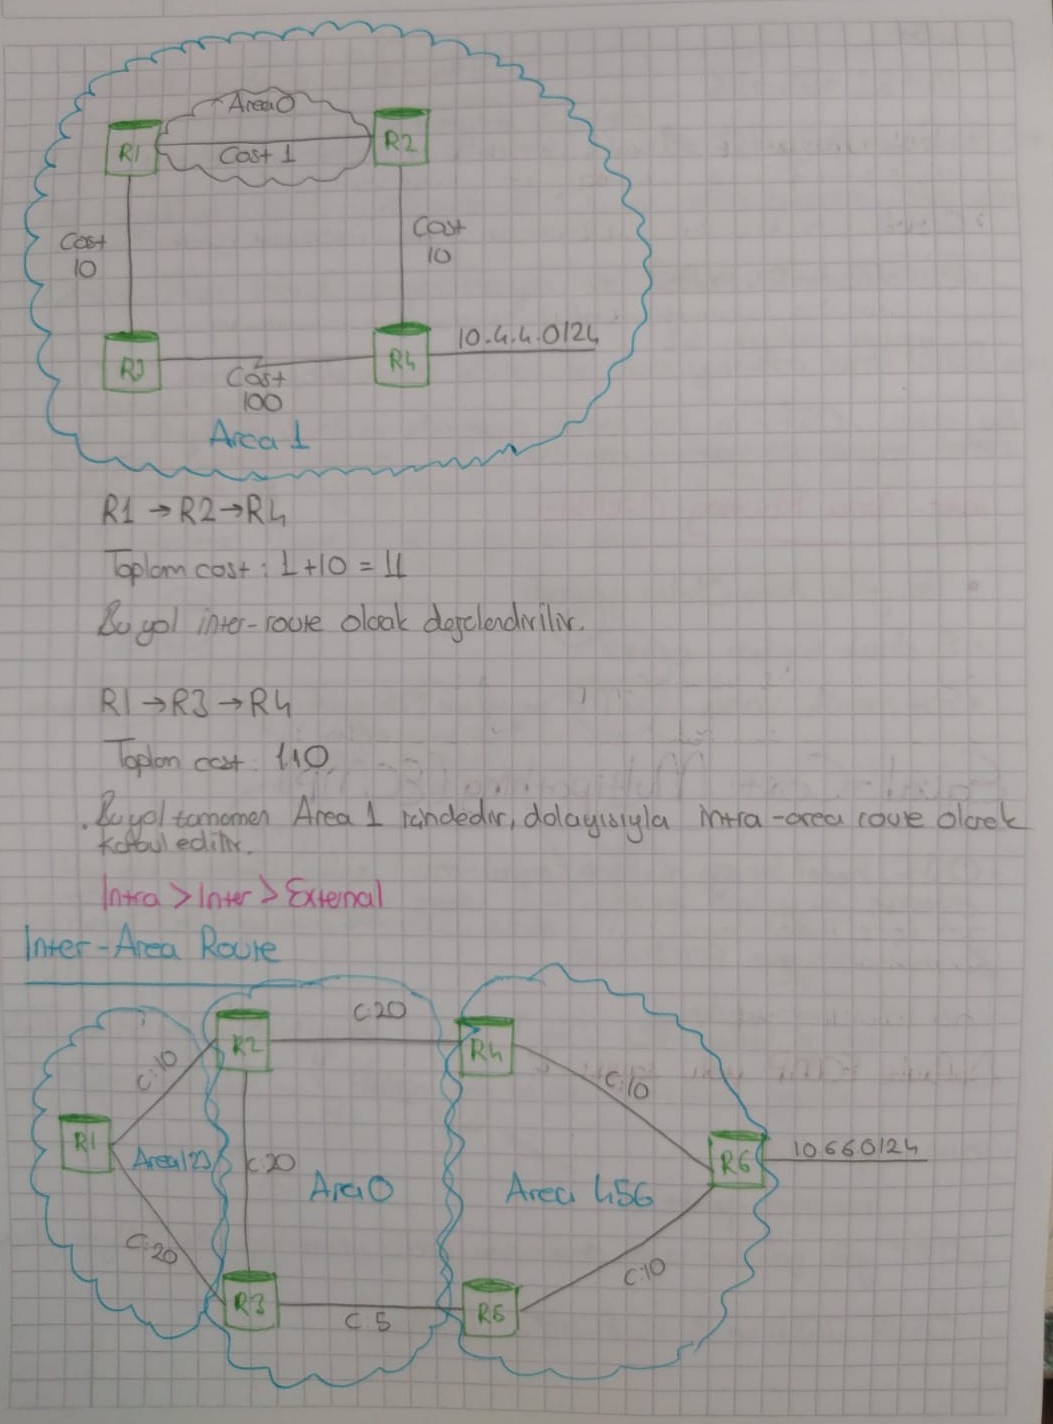 Area 0
R1
R2
Cost 1
Cost
10
Cost
10
R3
R4
10.4.4.0/24
Cost
100
Area 1
R1 → R2 → R4
Toplam cost : 1+10 = 11
Bu yol inter-route olarak değerlendirilir.
R1 → R3 → R4
Toplam cost : 110
Bu yol tamamen Area 1 içindedir, dolayısıyla intra-area route olarak
kabul edilir.
Intra > Inter > External
Inter-Area Route
C:20
R2
R4
C:10
C:10
R1
Area 123
C:20
Area 0
Area 456
R6
10.6.6.0/24
C:20
C:10
R3
C:5
R5